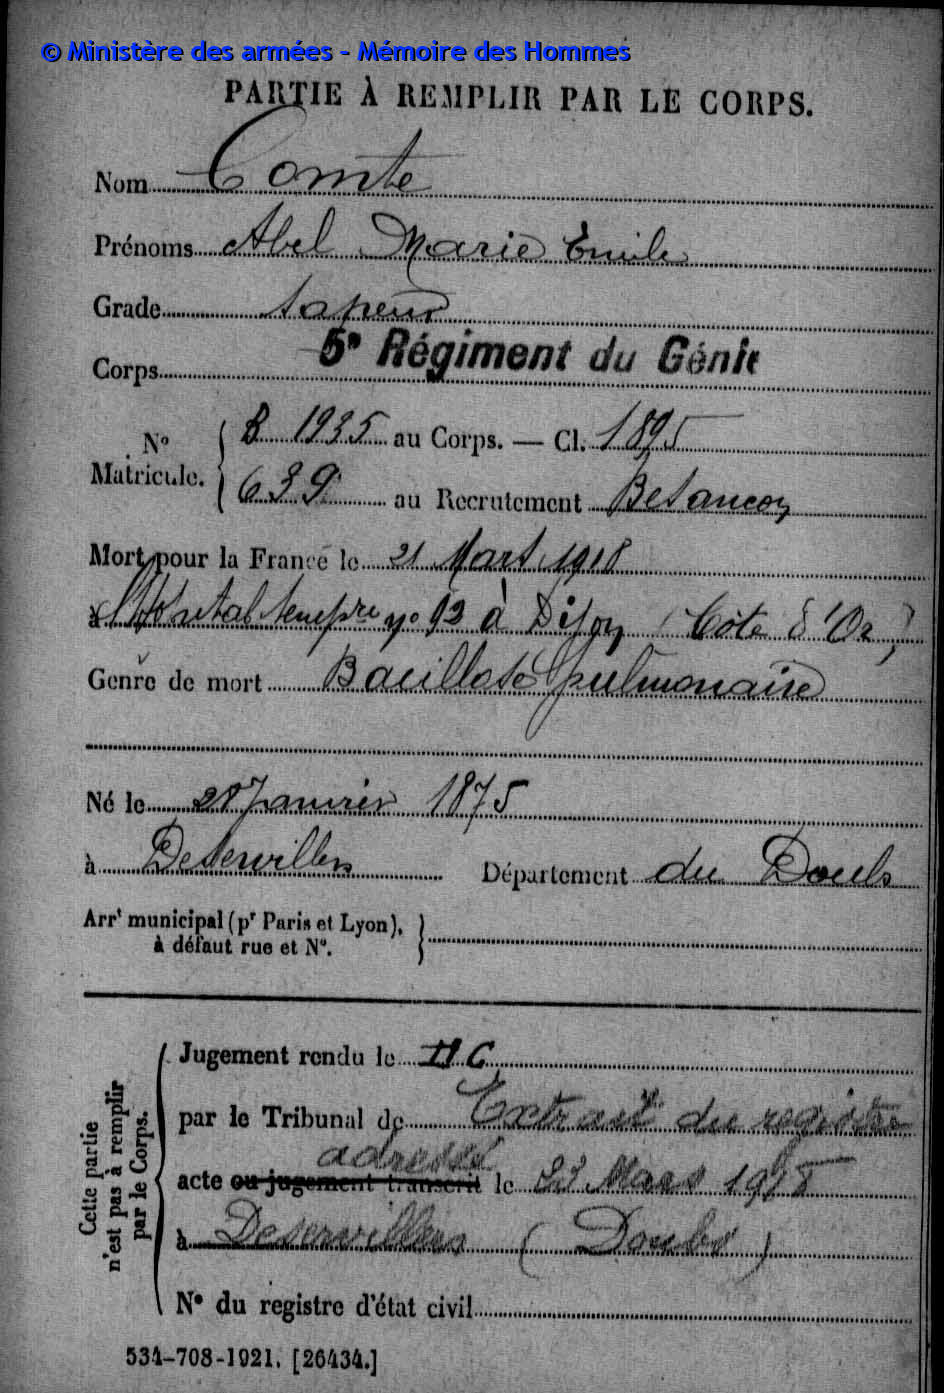 © Ministère des armées - Mémoire des Hommes
PARTIE À REMPLIR PAR LE CORPS.
Nom Comte
Prénoms Abel Marie Emile
Grade sapeur
Corps 5e Régiment du Génie
No Matricule. B 1935 au Corps. — Cl. 1895
639 au Recrutement Besancon
Mort pour la France le 21 Mars 1918
à l'Hopital tempre no 92 à Dijon (Côte d'Or)
Genre de mort Bacillose pulmonaire
Né le 28 Janvier 1875
à Deservillers Département du Doubs
Arrt municipal (pr Paris et Lyon),
à défaut rue et No.
Cette partie
n'est pas à remplir
par le Corps.
Jugement rendu le
par le Tribunal de Extrait du registre
adressé
acte ou jugement transcrit le 22 Mars 1918
à Deservillers (Doubs)
No du registre d'état civil
534-708-1921. [26434.]